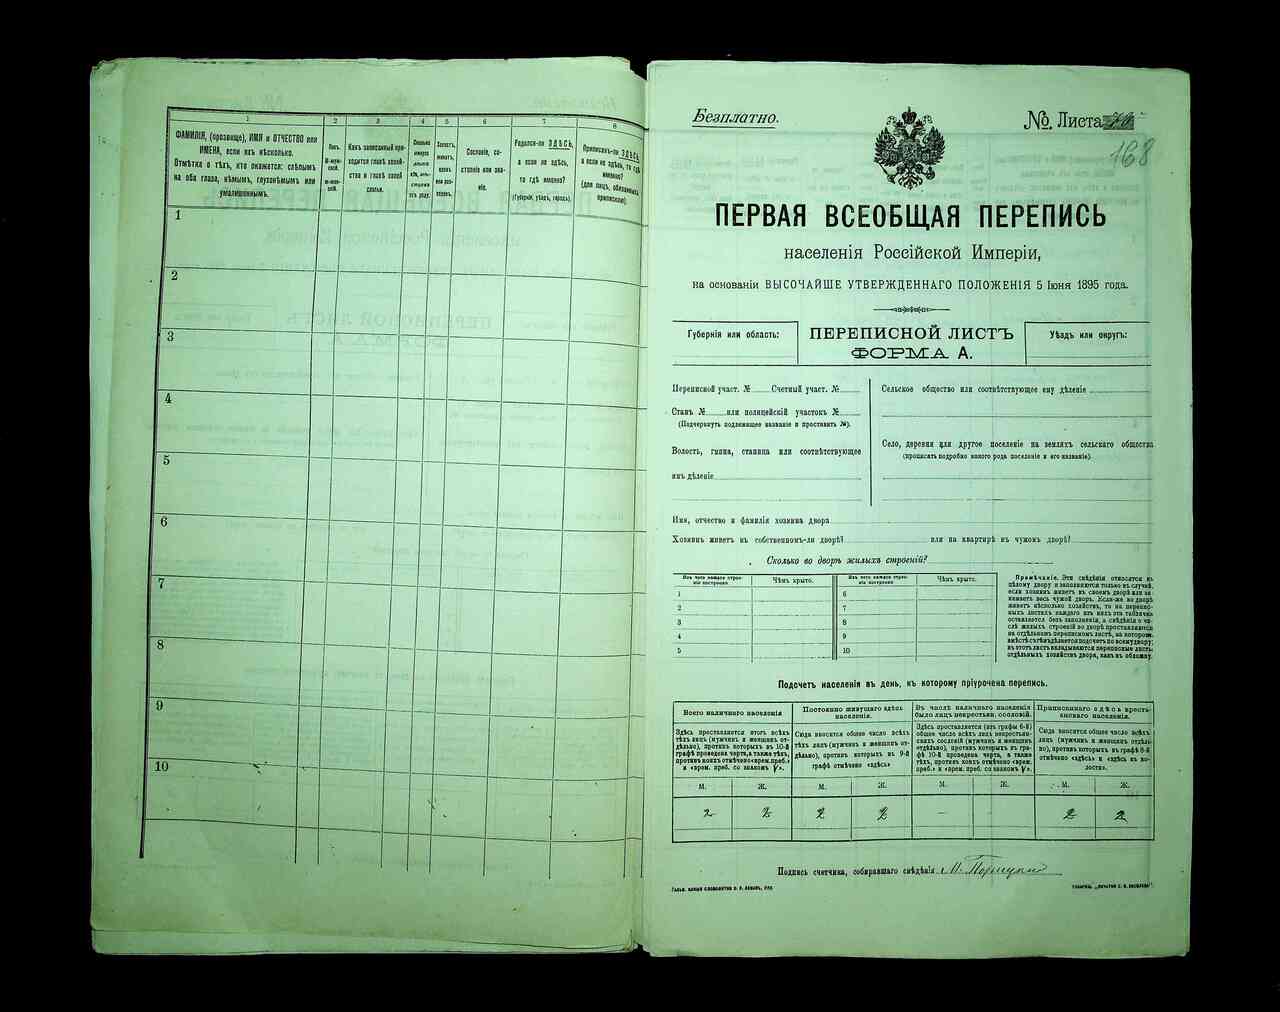 1
2
3
4
5
6
7
8
ФАМИЛІЯ, (прозвище), ИМЯ и ОТЧЕСТВО или
ИМЕНА, если ихъ нѣсколько.
Отмѣтка о тѣхъ, кто окажется: слѣпымъ
на оба глаза, нѣмымъ, глухонѣмымъ или
умалишеннымъ.
Полъ.
М-муж-
ской.
Ж-жен-
скій.
Какъ записанный при-
ходится главѣ хозяй-
ства и главѣ своей
семьи.
Сколько
минуло
лѣтъ
Сословіе, со-
стояніе или зва-
ніе.
Родился-ли ЗДѢСЬ,
а если не здѣсь,
то гдѣ именно?
(Губернія, уѣздъ, городъ).
Приписанъ-ли ЗДѢСЬ,
а если не здѣсь, то гдѣ
именно?
(для лицъ, обязанныхъ
припискою).
1
2
3
4
5
6
7
8
9
10
Безплатно.
№ Листа
168
ПЕРВАЯ ВСЕОБЩАЯ ПЕРЕПИСЬ
населенія Россійской Имперіи,
на основаніи ВЫСОЧАЙШЕ УТВЕРЖДЕННАГО ПОЛОЖЕНІЯ 5 Іюня 1895 года.
Губернія или область:
ПЕРЕПИСНОЙ ЛИСТЪ
ФОРМА А.
Уѣздъ или округъ:
Переписной участ. № Счетный участ. №
Станъ № или полицейскій участокъ №
(Подчеркнуть подлежащее названіе и проставить №).
Волость, гмина, станица или соотвѣтствующее
имъ дѣленіе
Сельское общество или соотвѣтствующее ему дѣленіе
Село, деревня или другое поселеніе на земляхъ сельскаго общества
(прописать подробно какого рода поселеніе и его названіе).
Имя, отчество и фамилія хозяина двора
Хозяинъ живетъ въ собственномъ-ли дворѣ? или на квартирѣ въ чужомъ дворѣ?
Сколько во дворѣ жилыхъ строеній?
Изъ чего каждое строе-
ніе построено
Чѣмъ крыто.
Изъ чего каждое строе-
ніе построено
Чѣмъ крыто.
1
2
3
4
5
6
7
8
9
10
Примѣчаніе. Эти свѣдѣнія относятся къ
цѣлому двору и заполняются только въ случаѣ,
если хозяинъ живетъ въ своемъ дворѣ или за-
нимаетъ весь чужой дворъ. Если-же во дворѣ
живетъ нѣсколько хозяйствъ, то на перепис-
ныхъ листахъ каждаго изъ нихъ эта табличка
оставляется безъ заполненія, а свѣдѣнія о чи-
слѣ жилыхъ строеній во дворѣ проставляются
на отдѣльномъ переписномъ листѣ, на которомъ
вмѣстѣ съ тѣмъ дѣлается подсчетъ по всему двору;
въ этотъ листъ вкладываются переписные листы
отдѣльныхъ хозяйствъ двора, какъ въ обложку.
Подсчетъ населенія въ день, къ которому пріурочена перепись.
Всего наличнаго населенія
Постоянно живущаго здѣсь
населенія.
Въ числѣ наличнаго населенія
было лицъ некрестьян. сословій.
Приписаннаго здѣсь крестья-
нскаго населенія.
Здѣсь проставляется итогъ всѣхъ
тѣхъ лицъ (мужчинъ и женщинъ от-
дѣльно), противъ которыхъ въ 10-й
графѣ проведена черта, а также тѣхъ,
противъ коихъ отмѣчено «врем. преб.»
и «врем. преб. со знакомъ V».
Сюда вносится общее число всѣхъ
тѣхъ лицъ (мужчинъ и женщинъ от-
дѣльно), противъ которыхъ въ 9-й
графѣ отмѣчено «здѣсь»
Здѣсь проставляется (изъ графы 6-й)
общее число всѣхъ лицъ некрестьян-
скихъ сословій (мужчинъ и женщинъ
отдѣльно), противъ которыхъ въ гра-
фѣ 10-й проведена черта, а также
тѣхъ, противъ коихъ отмѣчено «врем.
преб.» и «врем. преб. со знакомъ V».
Сюда вносится общее число всѣхъ
лицъ (мужчинъ и женщинъ отдѣль-
но), противъ которыхъ въ графѣ 8-й
отмѣчено «здѣсь» и «здѣсь въ во-
лости».
М. Ж. М. Ж. М. Ж. М. Ж.
2 2 2 2 — — 2 2
Подпись счетчика, собиравшаго свѣдѣнія М.